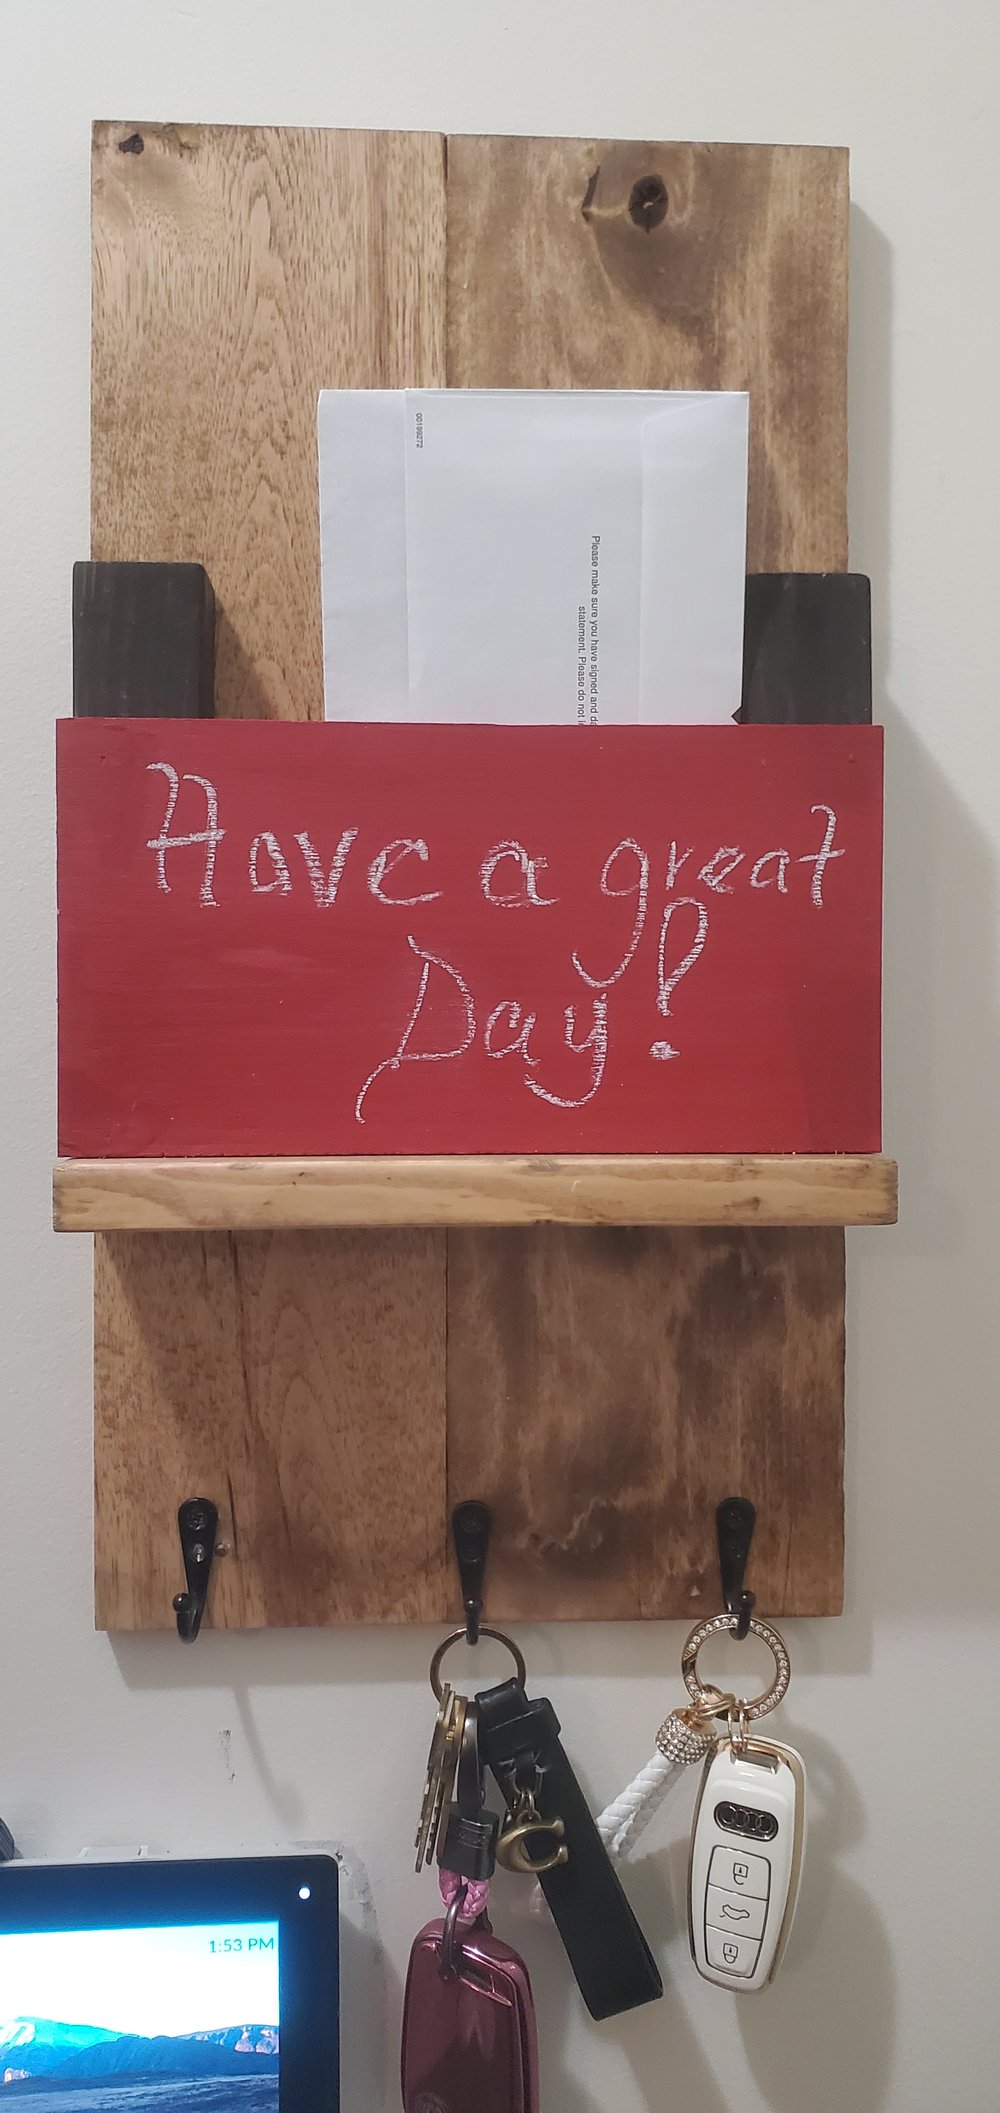 00199272
Please make sure you have signed and da
statement. Please do not i
Have a great
Day!
C
1:53 PM